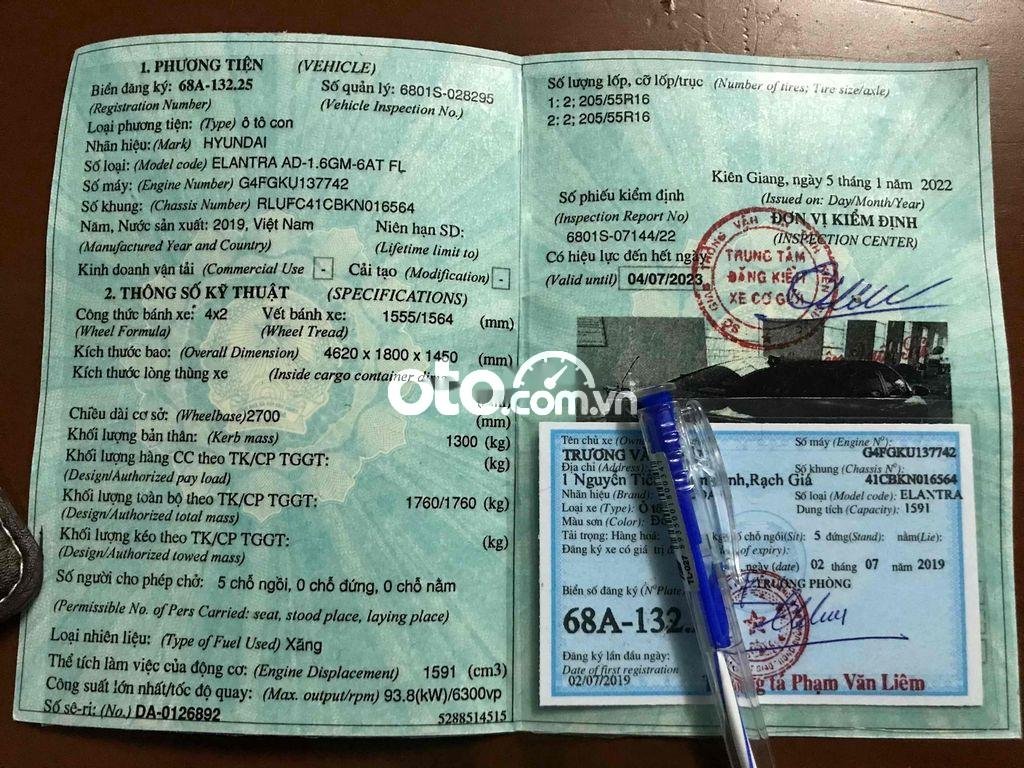 1. PHƯƠNG TIỆN (VEHICLE)
Biển đăng ký: 68A-132.25 Số quản lý: 6801S-028295
(Registration Number) (Vehicle Inspection No.)
Loại phương tiện: (Type) ô tô con
Nhãn hiệu: (Mark) HYUNDAI
Số loại: (Model code) ELANTRA AD-1.6GM-6AT FL
Số máy: (Engine Number) G4FGKU137742
Số khung: (Chassis Number) RLUFC41CBKN016564
Năm, Nước sản xuất: 2019, Việt Nam Niên hạn SD:
(Manufactured Year and Country) (Lifetime limit to)
Kinh doanh vận tải (Commercial Use - Cải tạo (Modification) -
2. THÔNG SỐ KỸ THUẬT (SPECIFICATIONS)
Công thức bánh xe: 4x2 Vết bánh xe: 1555/1564 (mm)
(Wheel Formula) (Wheel Tread)
Kích thước bao: (Overall Dimension) 4620 x 1800 x 1450 (mm)
Kích thước lòng thùng xe (Inside cargo container
Chiều dài cơ sở: (Wheelbase)2700 (mm)
Khối lượng bản thân: (Kerb mass) 1300 (kg)
Khối lượng hàng CC theo TK/CP TGGT: (kg)
(Design/Authorized pay load)
Khối lượng toàn bộ theo TK/CP TGGT: 1760/1760 (kg)
(Design/Authorized total mass)
Khối lượng kéo theo TK/CP TGGT: (kg)
(Design/Authorized towed mass)
Số người cho phép chở: 5 chỗ ngồi, 0 chỗ đứng, 0 chỗ nằm
(Permissible No. of Pers Carried: seat, stood place, laying place)
Loại nhiên liệu: (Type of Fuel Used) Xăng
Thể tích làm việc của động cơ: (Engine Displacement) 1591 (cm3)
Công suất lớn nhất/tốc độ quay: (Max. output/rpm) 93.8(kW)/6300vp
Số sê-ri: (No.) DA-0126892 5288514515
Số lượng lốp, cỡ lốp/trục (Number of tires; Tire size/axle)
1: 2; 205/55R16
2: 2; 205/55R16
Kiên Giang, ngày 5 tháng 1 năm 2022
Số phiếu kiểm định (Issued on: Day/Month/Year)
(Inspection Report No) ĐƠN VỊ KIỂM ĐỊNH
6801S-07144/22 (INSPECTION CENTER)
Có hiệu lực đến hết ngày
(Valid until) 04/07/2023
TRUNG TÂM
ĐĂNG KIỂM
XE CƠ GIỚI
oto.com.vn
Tên chủ xe Số máy (Engine Nº):
TRƯƠNG G4FGKU137742
Địa chỉ (Address): Số khung (Chassis Nº):
1 Nguyễn ,Rạch Giá 41CBKN016564
Nhãn hiệu (Brand): Số loại (Model code): ELANTRA
Loại xe (Type): Ô tô Dung tích (Capacity): 1591
Màu sơn (Color):
Tải trọng: Hàng hoá: chỗ ngồi(Sit): 5 đứng(Stand): nằm(Lie):
Đăng ký xe có giá trị of expiry):
ngày (date) 02 tháng 07 năm 2019
TRƯỞNG PHÒNG
Biển số đăng ký (NºPlate)
68A-132.25
Đăng ký lần đầu ngày:
Date of first registration
02/07/2019 tá Phạm Văn Liêm